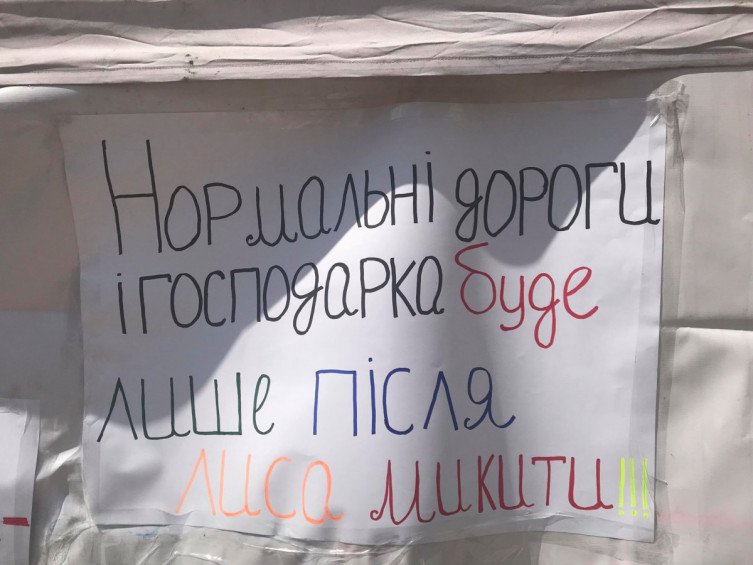 Нормальні дороги
і господарка буде
лише після
лиса микити!!!